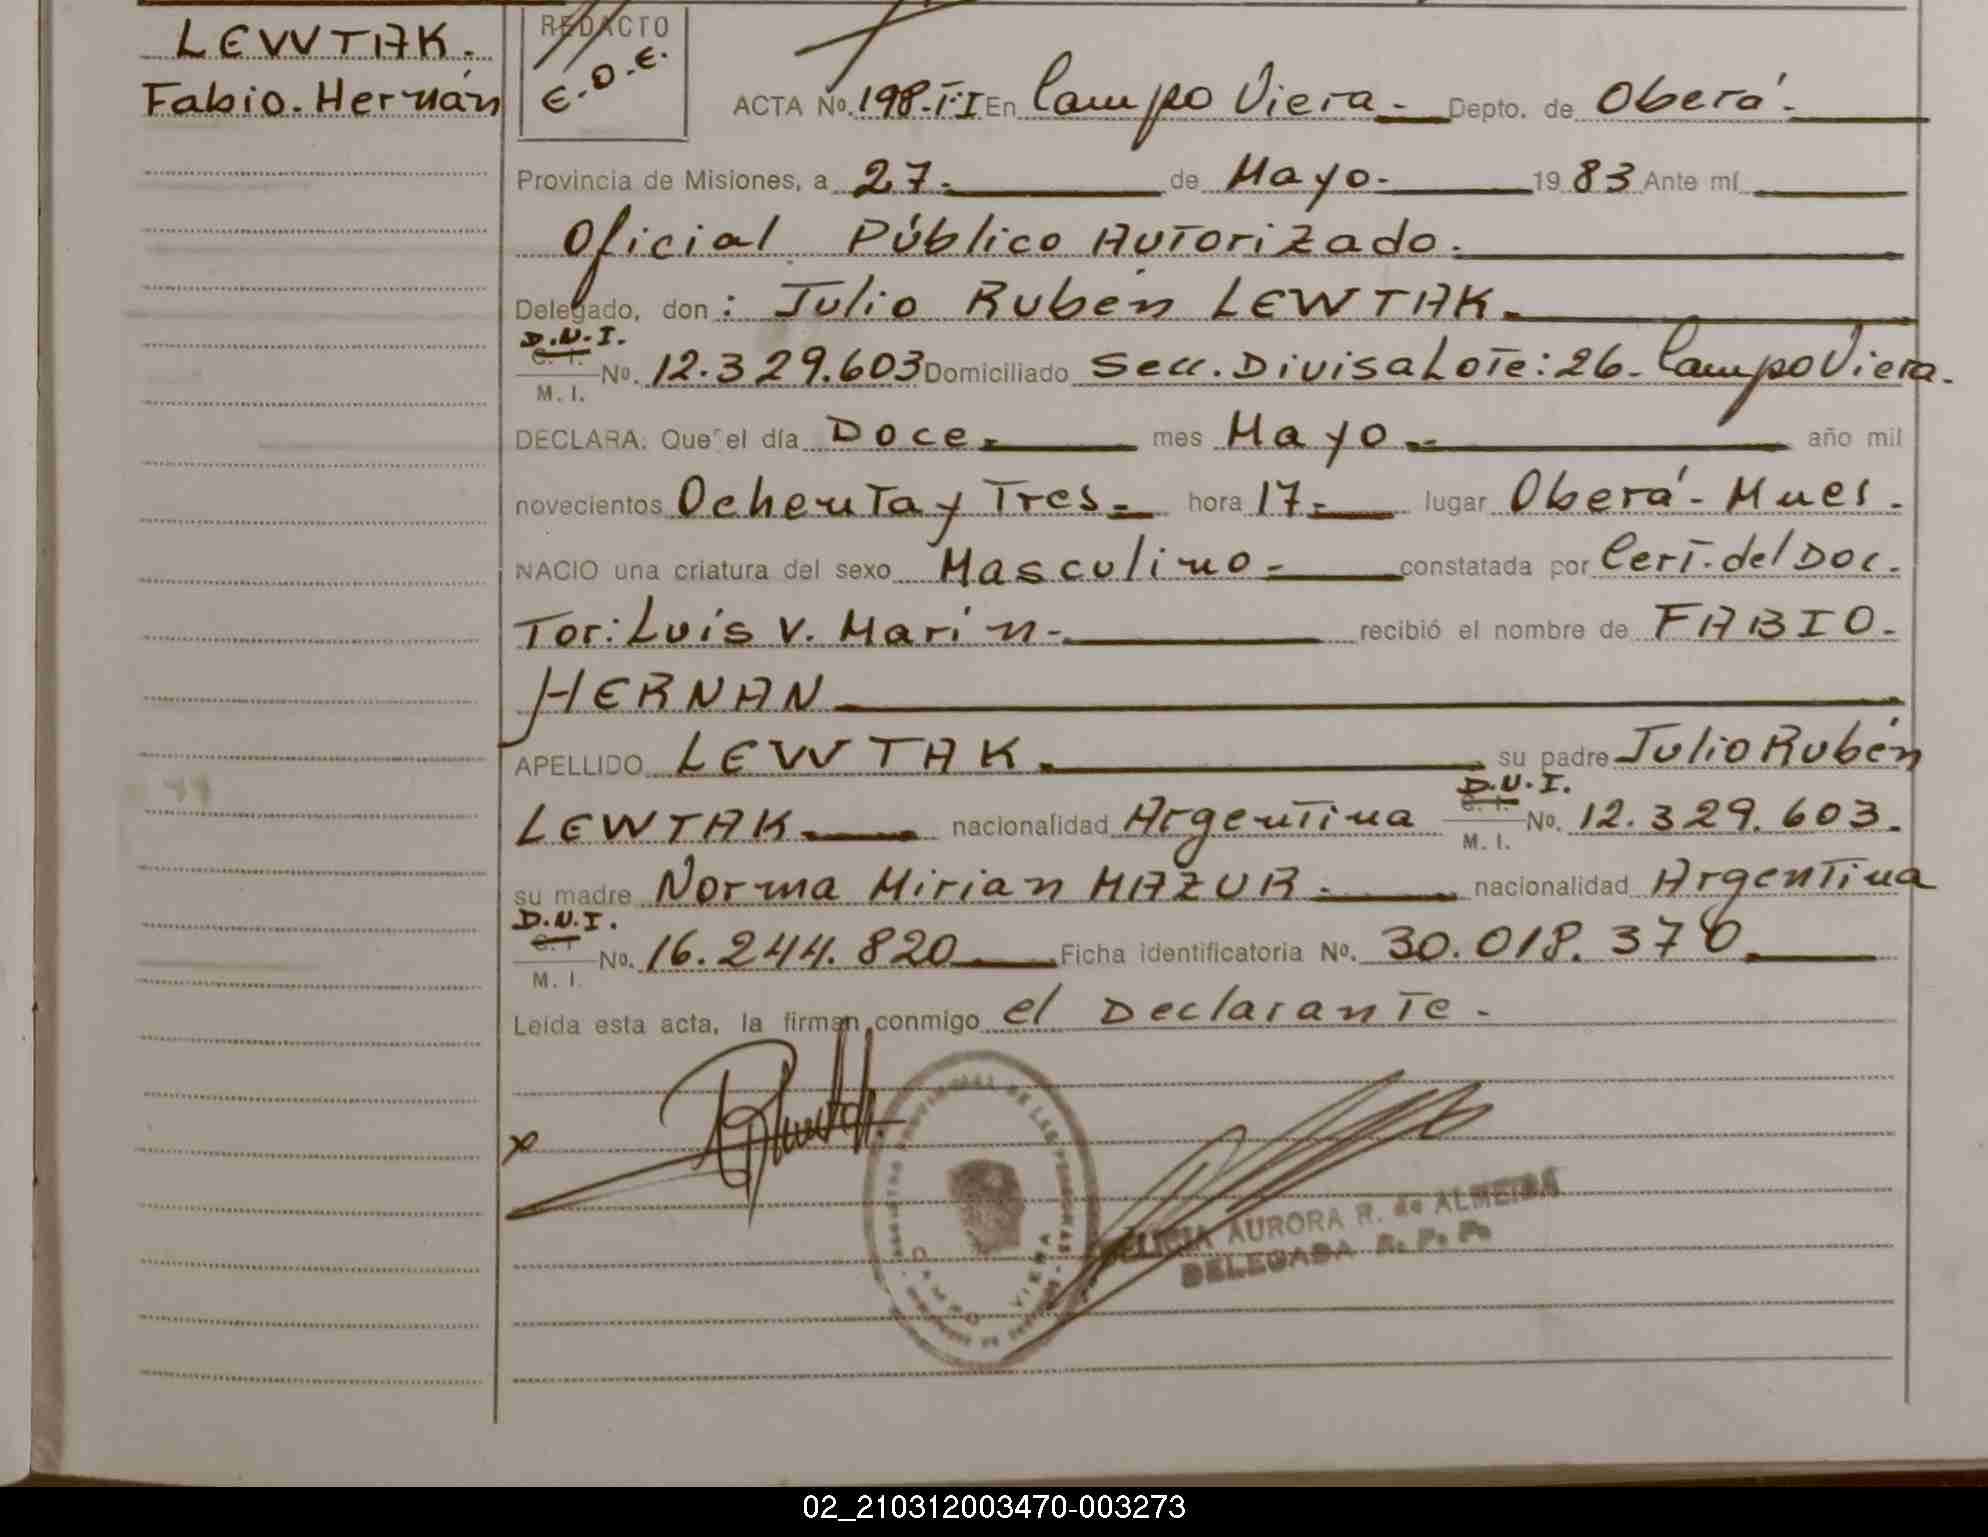 LEWTAK.
Fabio. Hernán
REDACTO
E.O.E.
ACTA No. 198-T:I En Campo Viera.- Depto. de Oberá.-
Provincia de Misiones, a 27.- de Mayo.- 1983 Ante mí
Oficial Público Autorizado.
Delegado, don: Julio Rubén LEWTAK.
D.N.I.
C. I.
M. I. No. 12.329.603 Domiciliado Secc. Divisa Lote: 26- Campo Viera.
DECLARA: Que el día Doce.- mes Mayo.- año mil
novecientos Ochenta y Tres.- hora 17.- lugar Oberá.- Mnes.
NACIO una criatura del sexo Masculino.- constatada por Cert. del Doc.
Tor: Luis V. Marín.- recibió el nombre de FABIO.
HERNAN
APELLIDO LEWTAK. su padre Julio Rubén
D.N.I.
C. I.
LEWTAK nacionalidad Argentina M. I. No. 12.329.603.
su madre Norma Mirian MAZUR.- nacionalidad Argentina
D.N.I.
C. I
M. I. No. 16.244.820 Ficha identificatoria No. 30.018.370
Leída esta acta, la firman conmigo el Declarante.-
x
CAMPO VIERA
AURORA R. de ALMEIDA
DELEGADA R. P. P.
02_210312003470-003273